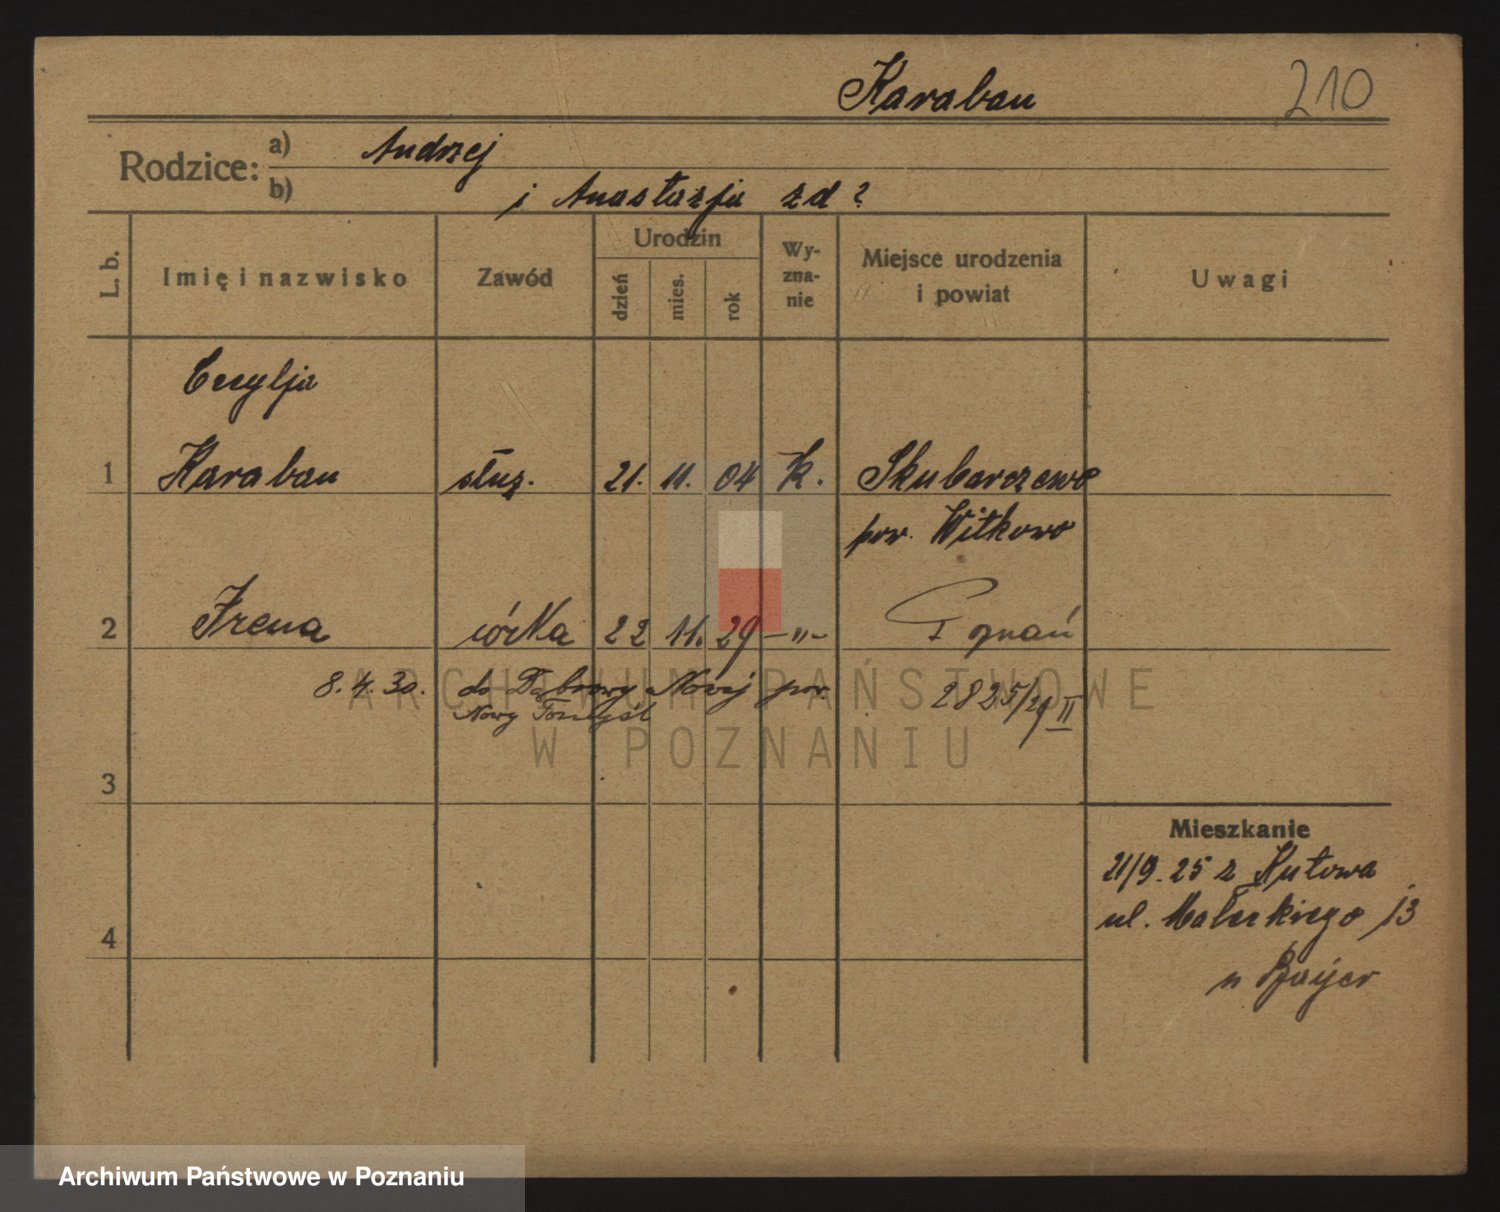 Karaban 210
Rodzice: a) Andrzej
b) i Anastazja zd ?
L. b. Imię i nazwisko Zawód Urodzin dzień mies. rok Wy-zna-nie Miejsce urodzenia i powiat Uwagi
Cecylja
1 Karaban służ. 21. 11. 04 k. Skubarczewo
pow. Witkowo
2 Irena córka 22 11. 29 -"- Poznań
8.4.30. do Dąbrowy Nowej pow. 2825/29 II
Nowy Tomyśl
ARCHIWUM PAŃSTWOWE
W POZNANIU
3
Mieszkanie
21/9.25 z
ul. Małeckiego 13
4
Archiwum Państwowe w Poznaniu